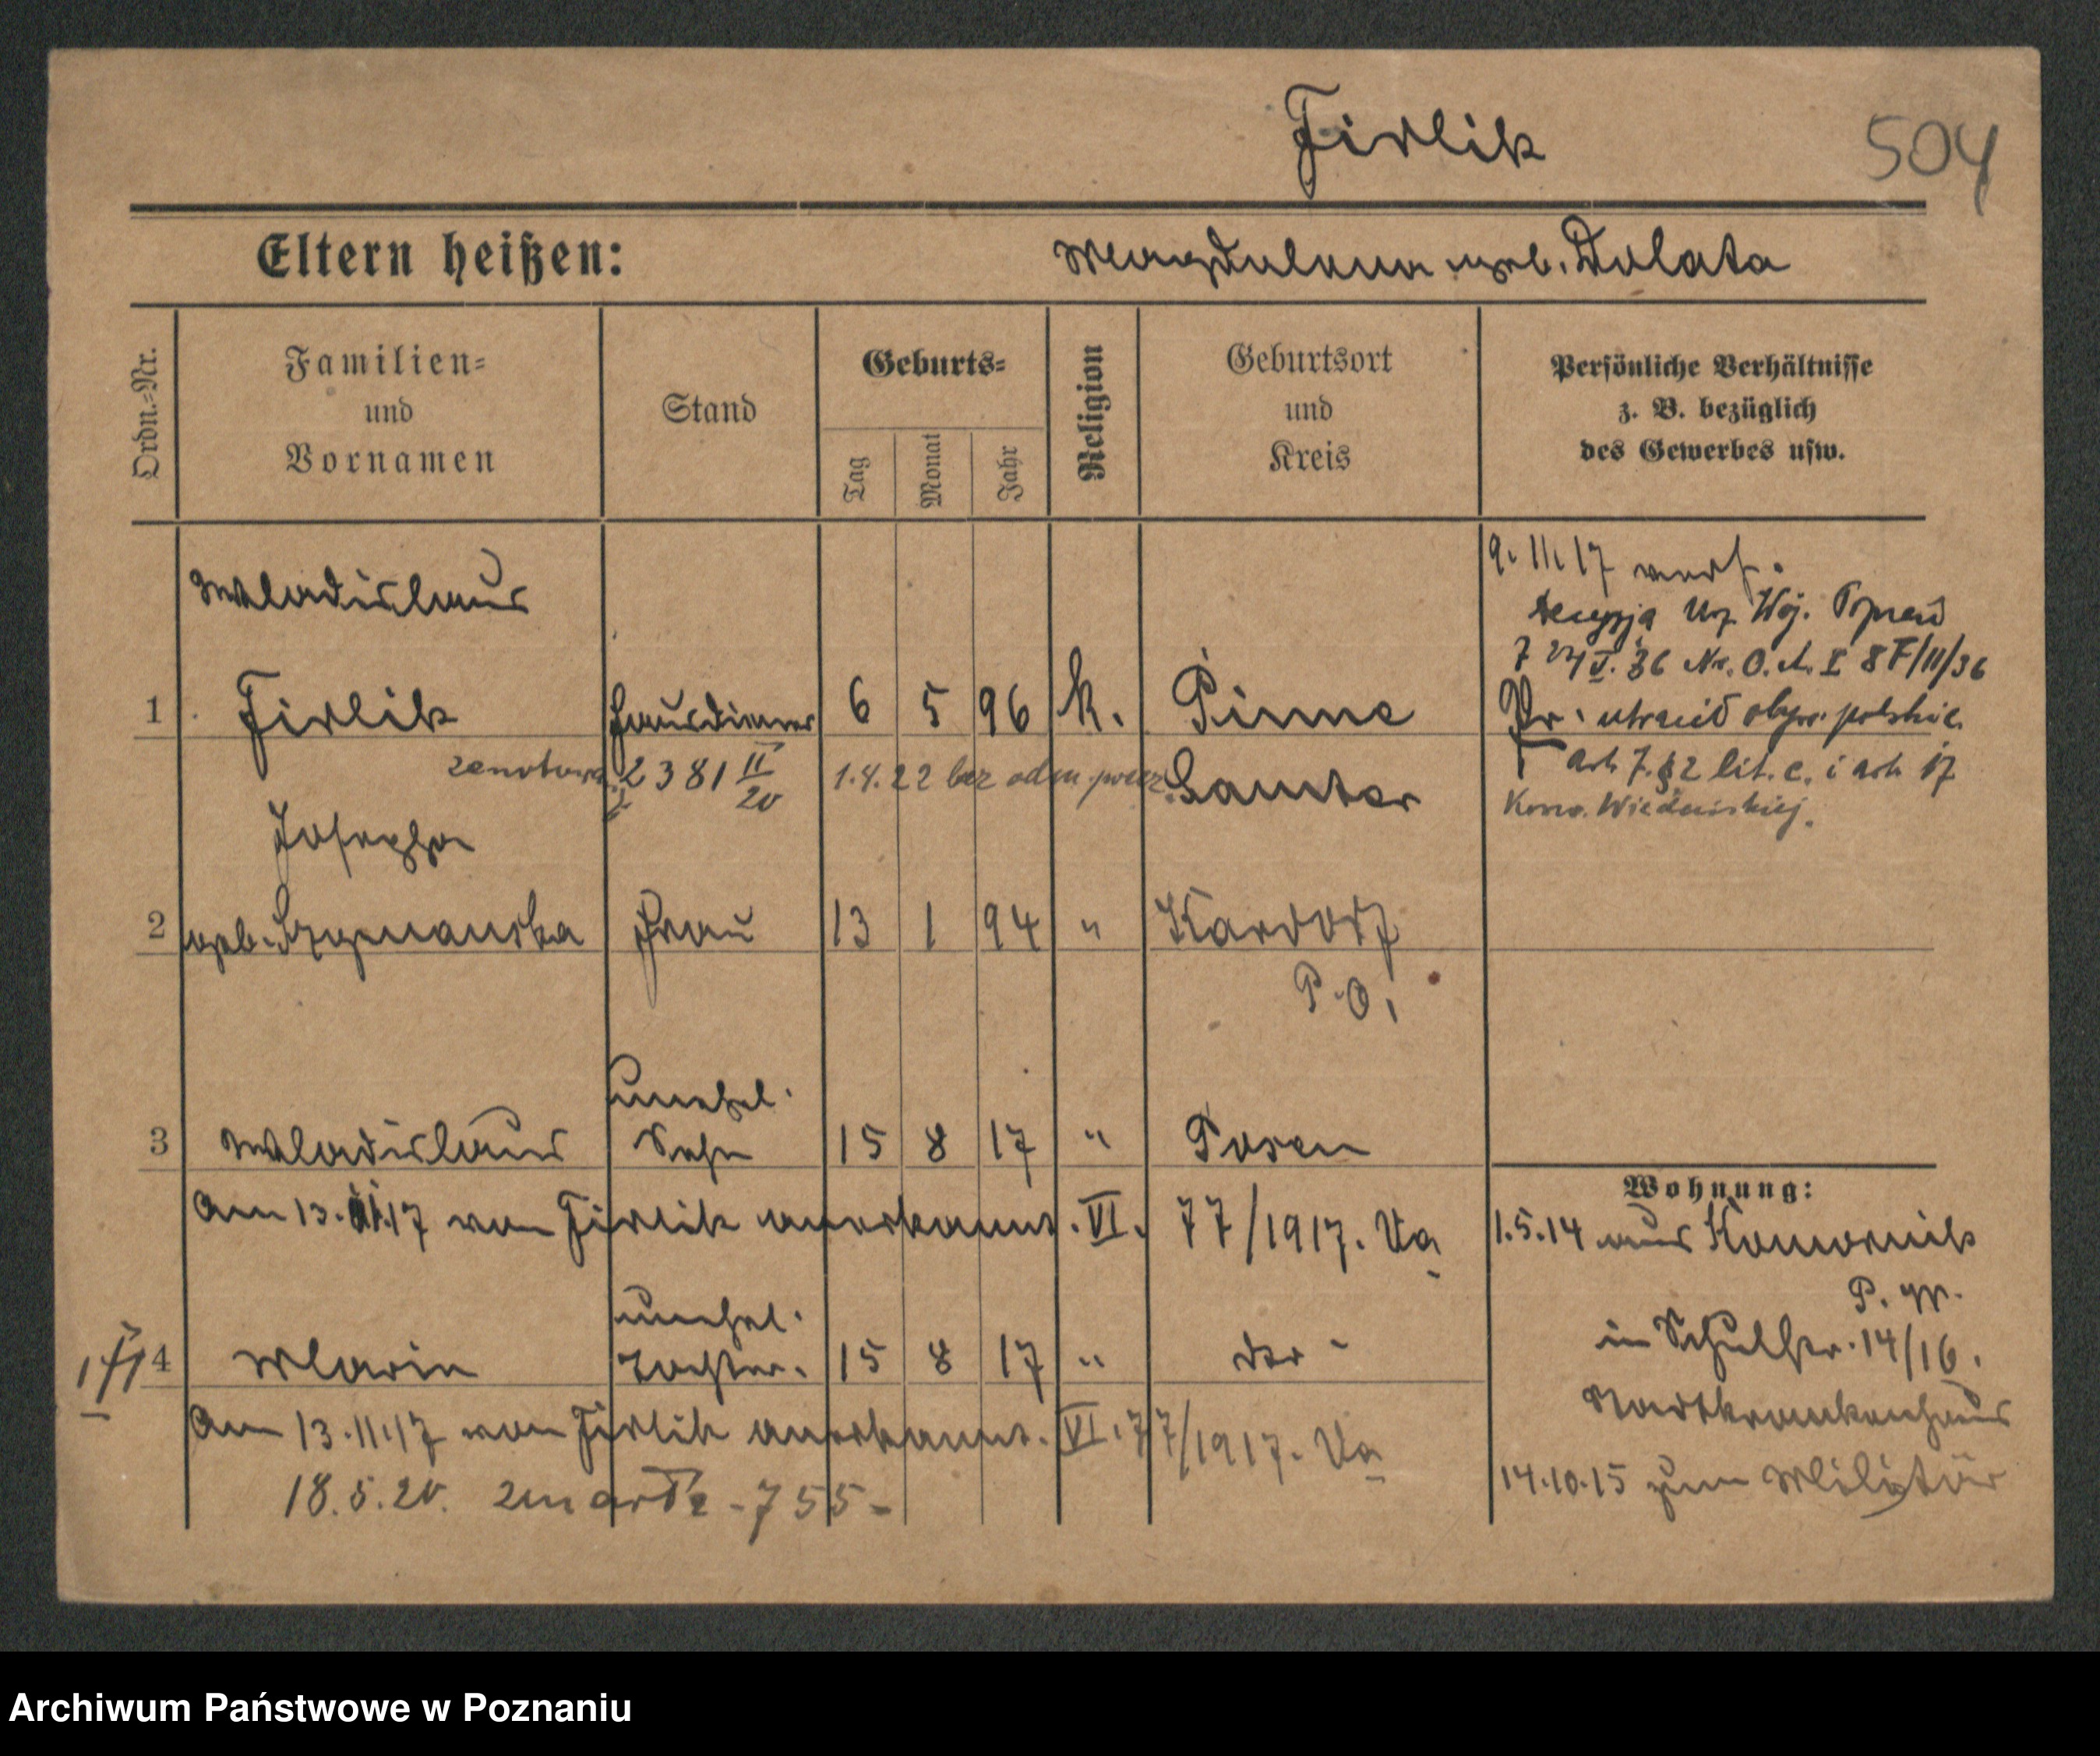 Firlik
504
Eltern heißen: Magdalena geb. Dolata
Ordn.-Nr.
Familien-
und
Vornamen
Stand
Geburts-
Tag
Monat
Jahr
Religion
Geburtsort
und
Kreis
Persönliche Verhältnisse
z. B. bezüglich
des Gewerbes usw.
Wladislaus
1 Firlik Hausdiener 6 5 96 k. Pinne
2381 II/20 1.4.22 bez adm. Samter
9. 11. 17 verh.
decyzja Urz. Woj.
36 No. O. A. I 8 F/11/36
utracił obyw. polskie
art. 7. § 2 lit. c. i art. 17
Konw. Wiedeńskiej.
Josepha
2 geb. Szymanska Frau 13 1 94 "
P. O.
unehel.
3 Wladislaus Sohn 15 8 17 " Posen
Am 13.11.17 von Firlik anerkannt. VI. 77/1917. Va
unehel.
4 Maria Tochter. 15 8 17 " do -
Am 13.11.17 von Firlik anerkannt. VI. 77/1917. Va
18.5.20. zmarła - 755 -
Wohnung:
1.5.14 aus Komornik
P. W.
in Schulstr. 14/16.
Stadtkrankenhaus
14.10.15 zum Militär
Archiwum Państwowe w Poznaniu